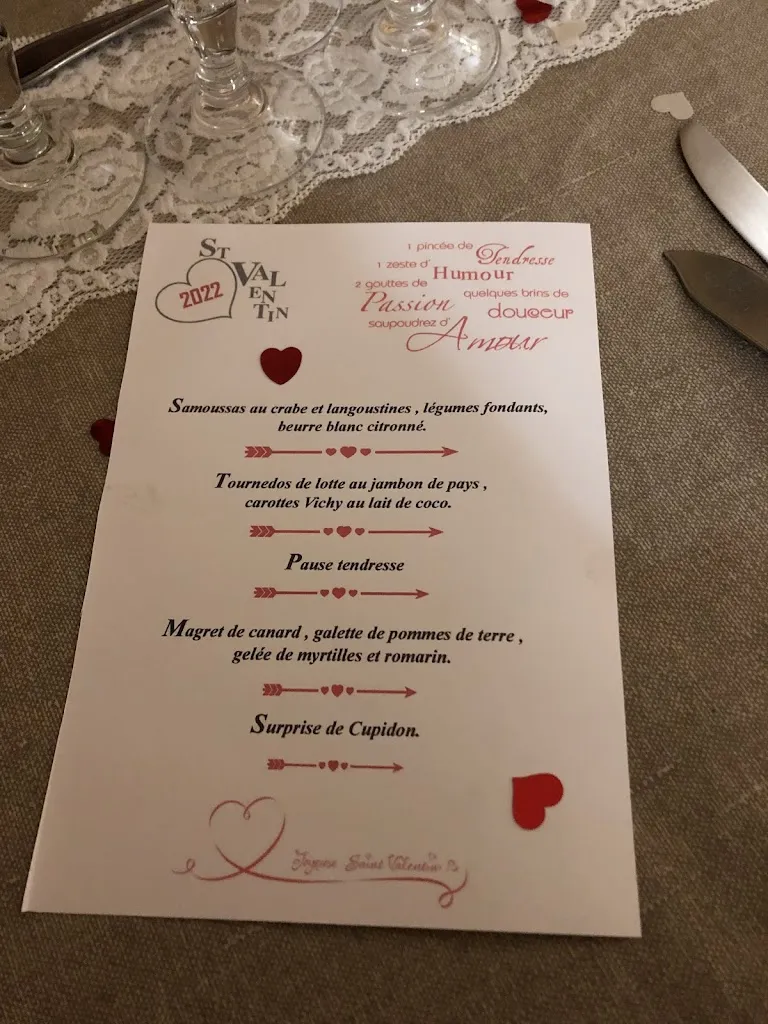 ST
VAL
EN
TIN
2022
1 pincée de Tendresse
1 zeste d' Humour
2 gouttes de
Passion
quelques brins de
douceur
saupoudrez d'
Amour
Samoussas au crabe et langoustines , légumes fondants,
beurre blanc citronné.
Tournedos de lotte au jambon de pays ,
carottes Vichy au lait de coco.
Pause tendresse
Magret de canard , galette de pommes de terre ,
gelée de myrtilles et romarin.
Surprise de Cupidon.
Joyeuse Saint Valentin